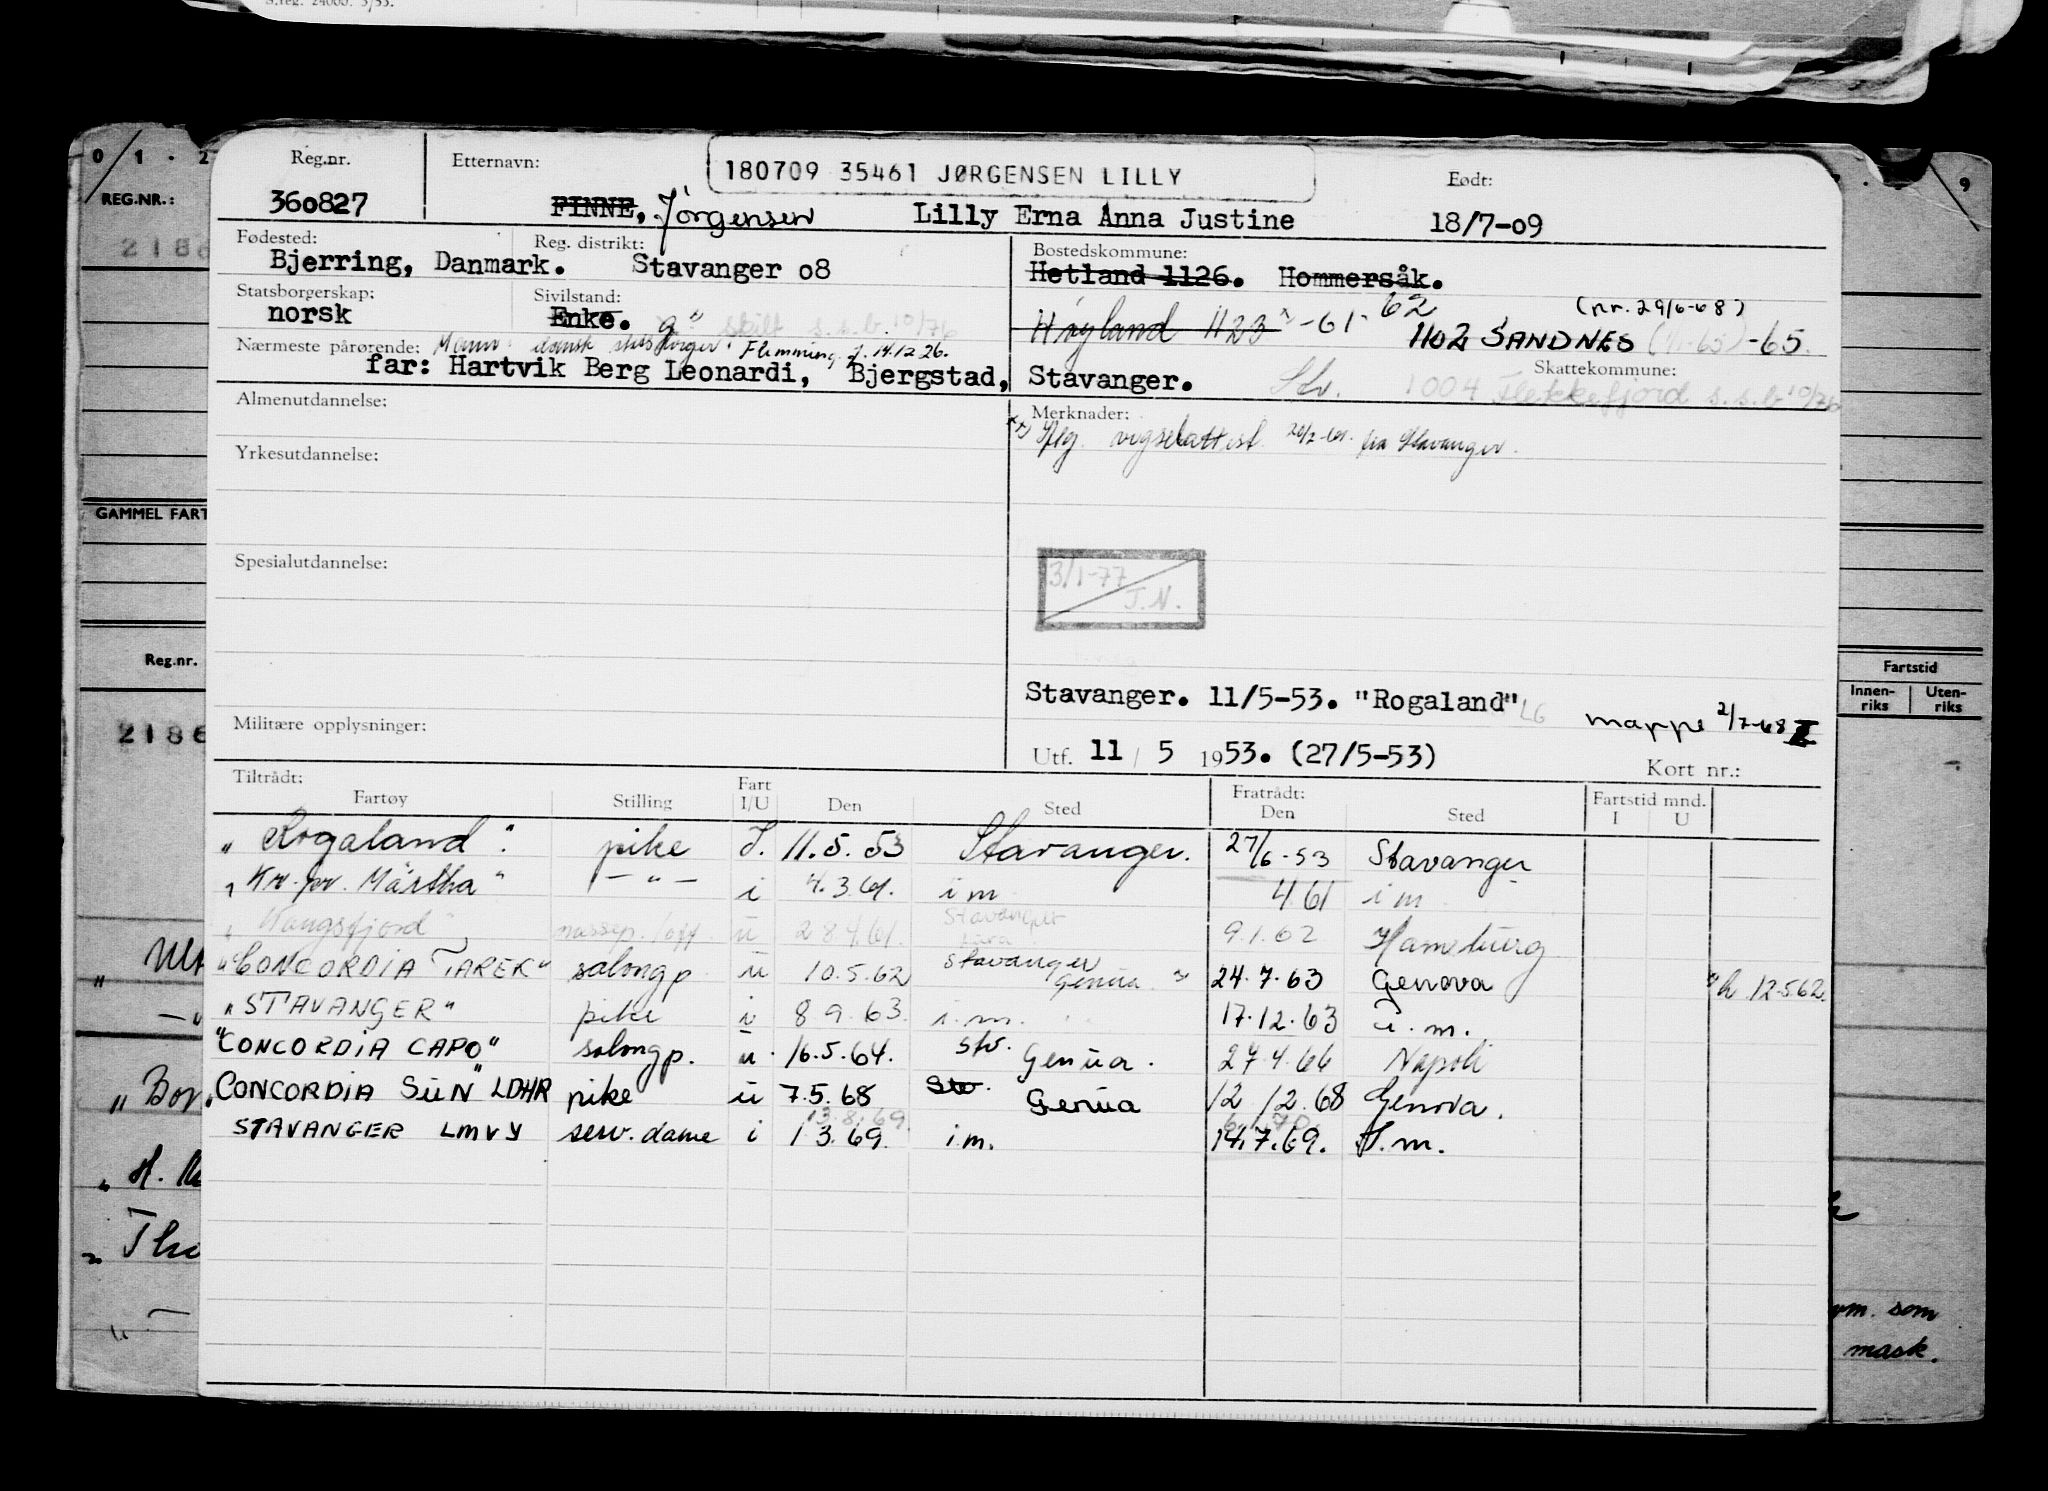 S.reg. 24000. 3/53.
0 / 1 . 2
9
REG.NR.:
2186
GAMMEL FART
Reg.nr.
2186
Fartstid
Innen-riks Uten-riks
Reg.nr. Etternavn: 180709 35461 JØRGENSEN LILLY Født:
360827 FINNE, Jørgensen Lilly Erna Anna Justine 18/7-09
Fødested: Reg. distrikt: Bostedskommune:
Bjerring, Danmark. Stavanger 08 Hetland 1126. Hommersåk.
Statsborgerskap: Sivilstand:
norsk Enke. g" skilt s.s.b. 10/76 Høyland 1123 -61-62 (nr. 29/6-68)
1102 SANDNES -65.
Nærmeste pårørende: Mann: dansk statsborger. Flemming f. 14.12.26. Skattekommune:
far: Hartvik Berg Leonardi, Bjergstad, Stavanger. Stv. 1004 Flekkefjord s.s.b 10/76
Almenutdannelse: Merknader:
vigselattest fra Stavanger.
Yrkesutdannelse:
Spesialutdannelse: 3/1-77
J.N.
Stavanger. 11/5-53. "Rogaland" LG
mappe 2/7-68
Militære opplysninger: Utf. 11 / 5 1953. (27/5-53) Kort nr.:
Tiltrådt: Fratrådt:
Fartøy Stilling Fart I/U Den Sted Den Sted Fartstid mnd. I U
"Rogaland". pike I. 11.5.53 Stavanger. 27/6-53 Stavanger
"Kr.pr. Märtha" — " — i 4.3.61. i m 4.61 i m
i 28.4.61. Stavanger 9.1.62 Hamburg
"CONCORDIA TAREK" salongp. u 10.5.62 Stavanger Genua 24.7.63 Genova h 12.5.62.
"STAVANGER" pike i 8.9.63. i.m. 17.12.63 i.m.
"CONCORDIA CAPO" salongp. u. 16.5.64. Stv. Genua. 27.4.66 Napoli
"CONCORDIA SUN" LDHR pike u 7.5.68 Stv. Genua 12.12.68 Genova.
13.8.69.
STAVANGER LMVY serv.dame i 1.3.69. i.m. 14.7.69. I.m.
"Bor
"H.
om. som
mask.